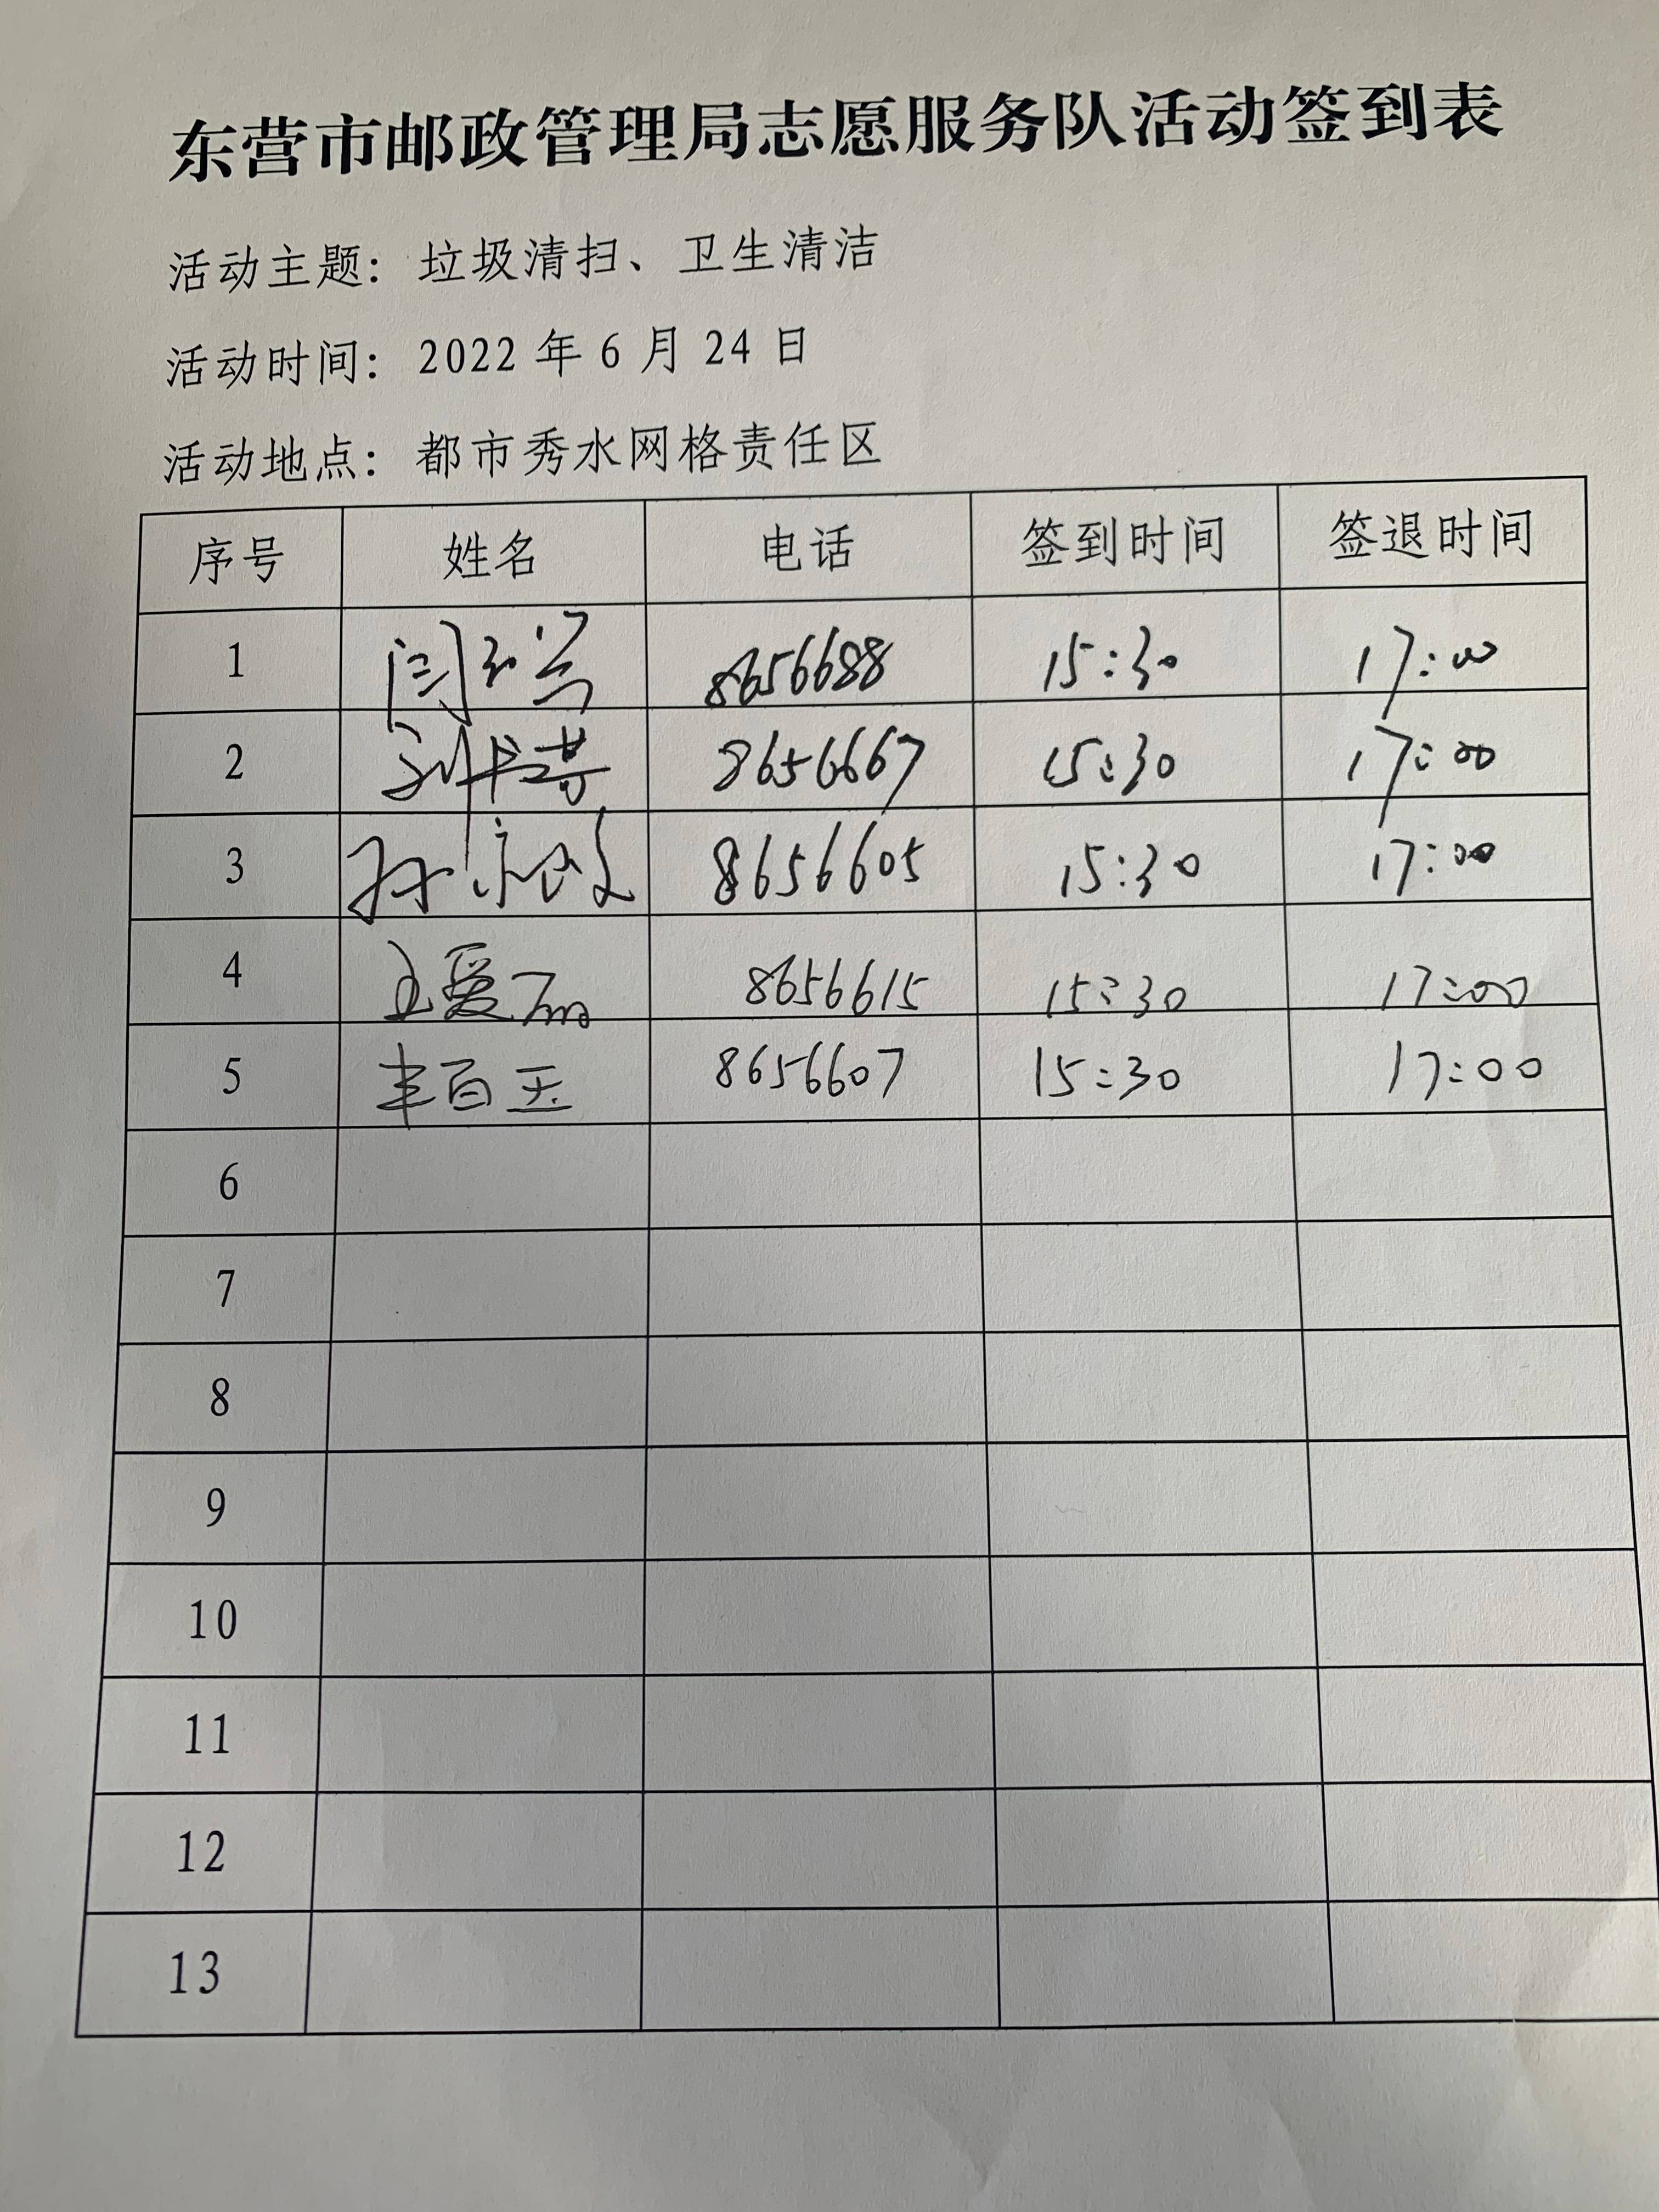 东营市邮政管理局志愿服务队活动签到表
活动主题：垃圾清扫、卫生清洁
活动时间：2022年6月24日
活动地点：都市秀水网格责任区
序号 姓名 电话 签到时间 签退时间
1 闫 8656688 15:30 17:00
2 刘 8656667 15:30 17:00
3 孙 8656605 15:30 17:00
4 王爱 8656615 15:30 17:00
5 丰百玉 8656607 15:30 17:00
6
7
8
9
10
11
12
13